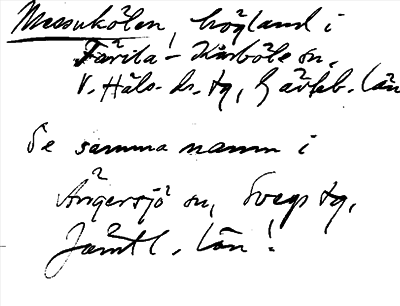 Messukölen, högland i
Färila-Kårböle sn.
V. Häls. ds. tg, Gävleb. län
Se samma namn i
Ängersjö sn, Svegs tg,
Jämtl. län!